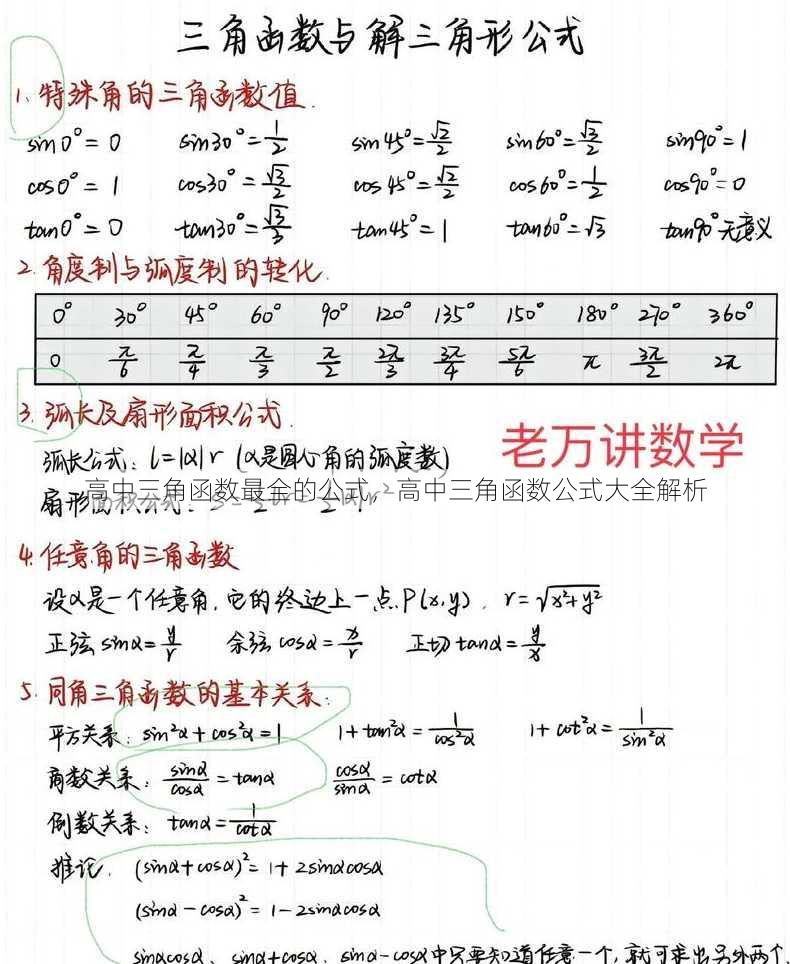 三角函数与解三角形公式
1. 特殊角的三角函数值.
sin0°=0 sin30°=1/2 sin45°=√2/2 sin60°=√3/2 sin90°=1
cos0°=1 cos30°=√3/2 cos45°=√2/2 cos60°=1/2 cos90°=0
tan0°=0 tan30°=√3/3 tan45°=1 tan60°=√3 tan90°无意义
2. 角度制与弧度制的转化.
0° 30° 45° 60° 90° 120° 135° 150° 180° 270° 360°
0 π/6 π/4 π/3 π/2 2π/3 3π/4 5π/6 π 3π/2 2π
3. 弧长及扇形面积公式.
老万讲数学
弧长公式: l=|α|r (α是圆心角的弧度数)
高中三角函数最全的公式，高中三角函数公式大全解析
扇形面积公式:
4. 任意角的三角函数
设α是一个任意角, 它的终边上一点P(x,y), r=√(x²+y²)
正弦 sinα=y/r 余弦 cosα=x/r 正切 tanα=y/x
5. 同角三角函数的基本关系:
平方关系: sin²α+cos²α=1 1+tan²α=1/cos²α 1+cot²α=1/sin²α
商数关系: sinα/cosα=tanα cosα/sinα=cotα
倒数关系: tanα=1/cotα
推论. (sinα+cosα)²=1+2sinαcosα
(sinα-cosα)²=1-2sinαcosα
sinαcosα、sinα+cosα、sinα-cosα中只要知道任意一个, 就可求出另外两个.